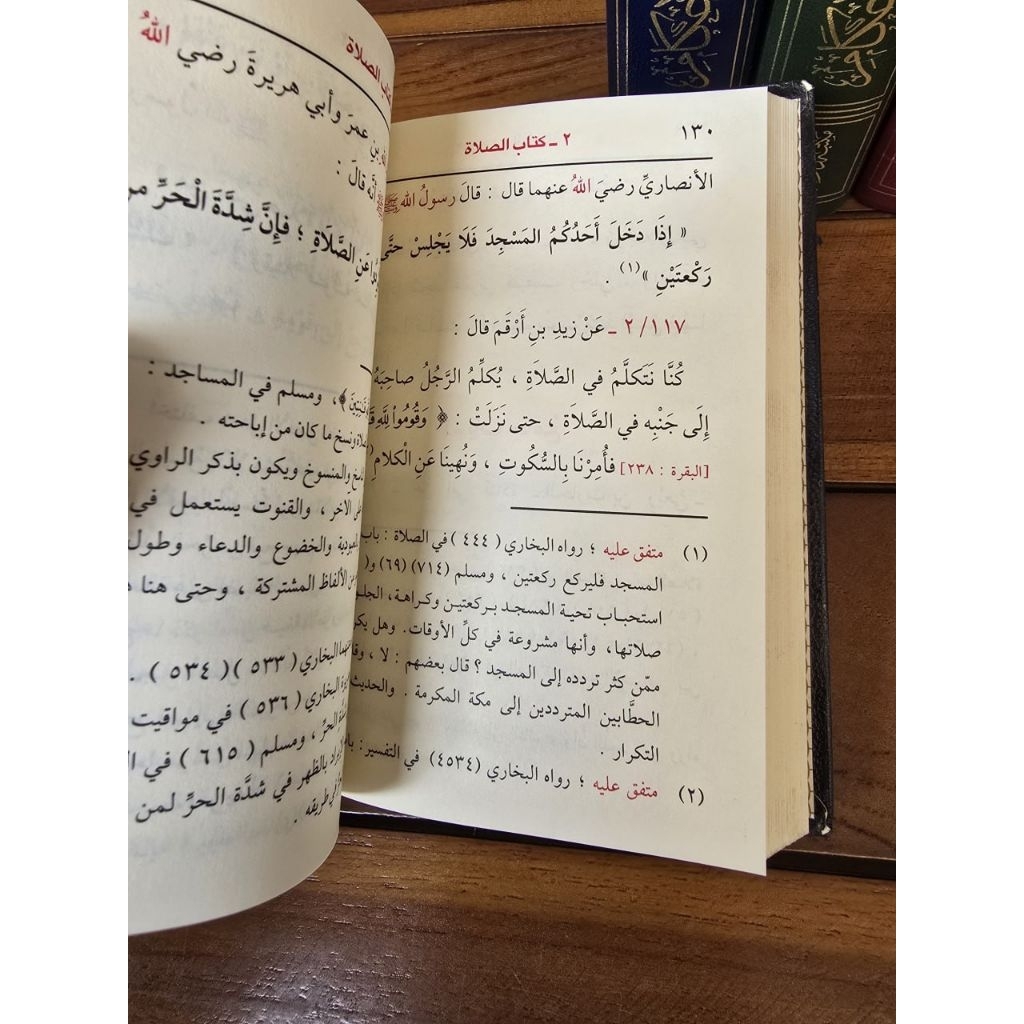 ١٣٠
٢ ـ كتاب الصلاة
الأنصاريِّ رضيَ اللهُ عنهما قال : قالَ رسولُ الله ﷺ
« إِذَا دَخَلَ أَحَدُكُمُ المَسْجِدَ فَلَا يَجْلِسْ حتَّى
رَكْعتَيْنِ »(١) .
٢/١١٧ ـ عَنْ زيدِ بنِ أَرْقَمَ قالَ :
كُنَّا نَتَكلَّمُ في الصَّلَاةِ ، يُكلِّمُ الرَّجُلُ صاحِبَهُ
إِلَى جَنْبِه في الصَّلَاةِ ، حتى نَزَلَتْ : ﴿ وَقُومُواْ لِلَّهِ
[البقرة : ٢٣٨] فأُمِرْنَا بِالسُّكُوتِ ، وَنُهِينَا عَنِ الْكلامِ
(١) متفق عليه ؛ رواه البخاري ( ٤٤٤ ) في الصلاة : باب
المسجد فليركع ركعتين ، ومسلم (٧١٤) (٦٩)
استحباب تحية المسجد بركعتين وكراهة،
صلاتها، وأنها مشروعة في كلِّ الأوقات. وهل
ممّن كثر تردده إلى المسجد ؟ قال بعضهم : لا ،
الحطَّابين المترددين إلى مكة المكرمة . والحديث
التكرار .
(٢) متفق عليه ؛ رواه البخاري (٤٥٣٤) في التفسير :
كتاب الصلاة
بنِ عمرَ وأبي هريرةَ رضي اللهُ
أنَّه قالَ :
عَنِ الصَّلَاةِ ؛ فإِنَّ شِدَّةَ الْحَرِّ من
، ومسلم في المساجد :
ونسخ ما كان من إباحته .
والمنسوخ ويكون بذكر الراوي
الآخر ، والقنوت يستعمل في
والخضوع والدعاء وطول
الألفاظ المشتركة ، وحتى هنا
البخاري ( ٥٣٣ ) ( ٥٣٤ ) .
البخاري ( ٥٣٦ ) في مواقيت
الحرِّ ، ومسلم ( ٦١٥ ) في
بالظهر في شدَّة الحرِّ لمن
طريقه .